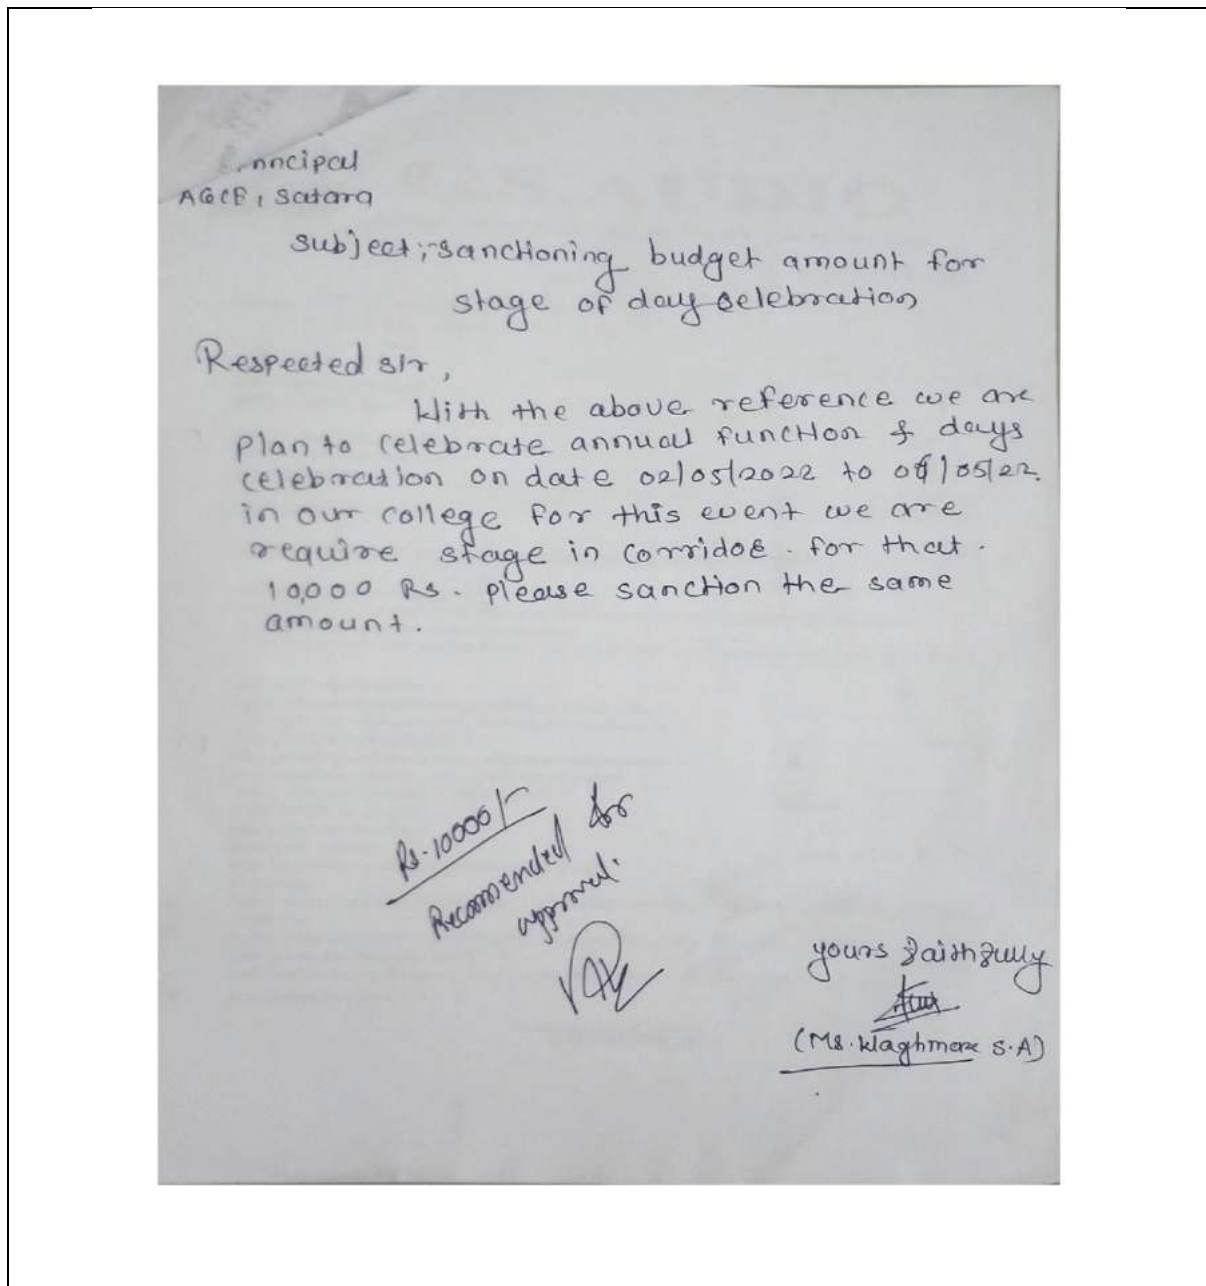 Principal
AGCE, Satara
Subject:- Sanctioning budget amount for
stage of day celebration
Respected sir,
With the above reference we are
plan to celebrate annual function & days
celebration on date 02/05/2022 to /05/22.
in our college for this event we are
require stage in corridoe. for that.
10,000 Rs. please sanction the same
amount.
Rs. 10000/-
Recommended for
approval.
yours faithfully
(Ms. Waghmare S.A)